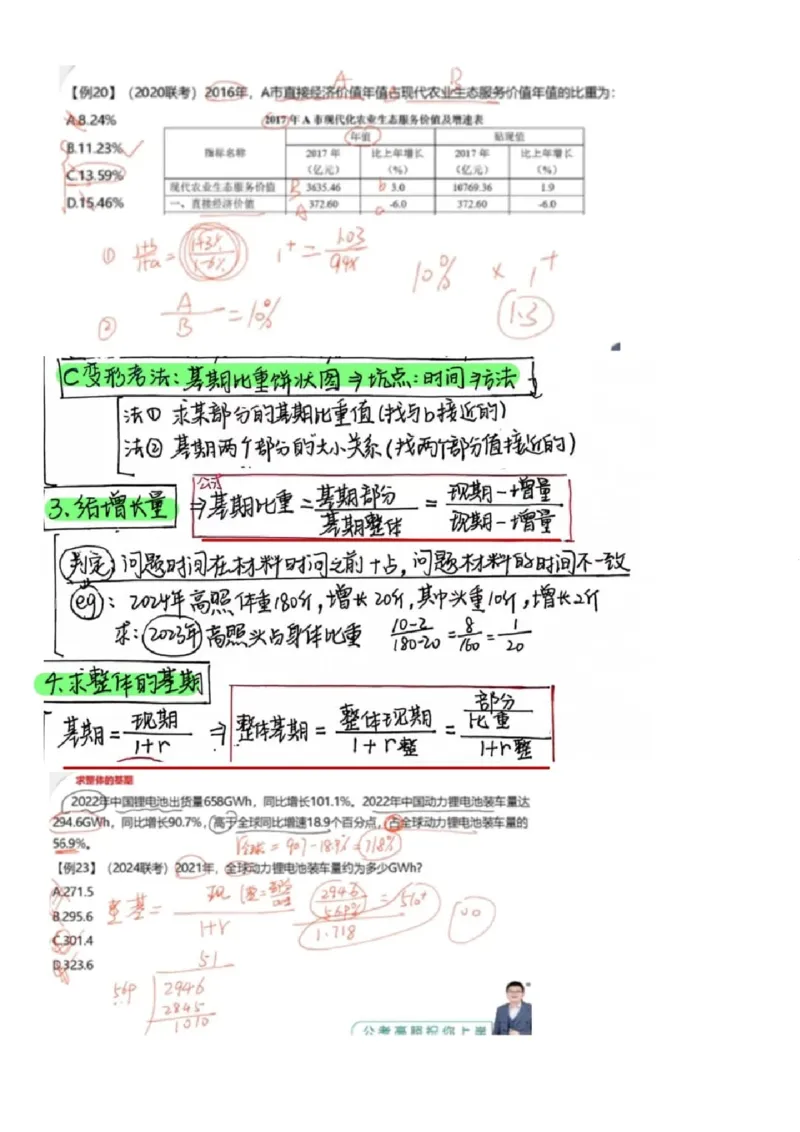 【例20】（2020联考）2016年，A市直接经济价值年值占现代农业生态服务价值年值的比重为：
A B
A.8.24%
B.11.23%
C.13.59%
D.15.46%
2017年A市现代化农业生态服务价值及增速表
指标名称 年值 贴现值
2017年（亿元） 比上年增长（%） 2017年（亿元） 比上年增长（%）
现代农业生态服务价值 B 3635.46 b 3.0 10769.36 1.9
一、直接经济价值 A 372.60 a -6.0 372.60 -6.0
① 1+b/1+a = 1+3%/1-6% 1⁺ = 1.03/94% 10% × 1⁺
② A/B = 10% 1.3
C变形考法：基期比重饼状图⇒坑点：时间⇒方法
法① 求某部分的基期比重值(找与b接近的)
法② 基期两个部分的大小关系(找两个部分值接近的)
3.给增长量 公式 ⇒基期比重 = 基期部分/基期整体 = 现期-增量/现期-增量
判定：问题时间在材料时间之前+占，问题材料的时间不一致
eg：2024年高照体重180斤，增长20斤，其中头重10斤，增长2斤
求：2023年高照头占身体比重 10-2/180-20 = 8/160 = 1/20
4.求整体的基期
基期 = 现期/1+r ⇒ 整体基期 = 整体现期/1+r整 = 部分/比重/1+r整
求整体的基期
2022年中国锂电池出货量658GWh，同比增长101.1%。2022年中国动力锂电池装车量达
294.6GWh，同比增长90.7%，高于全球同比增速18.9个百分点，占全球动力锂电池装车量的
56.9%。
全球 = 90.7-18.9% = 71.8%
【例23】（2024联考）2021年，全球动力锂电池装车量约为多少GWh？
A.271.5
B.295.6
C.301.4
D.323.6
1+r
294.6/56.9% = 510⁺
1.718
51
569 2946
2845
1010
公考高照祝你上岸